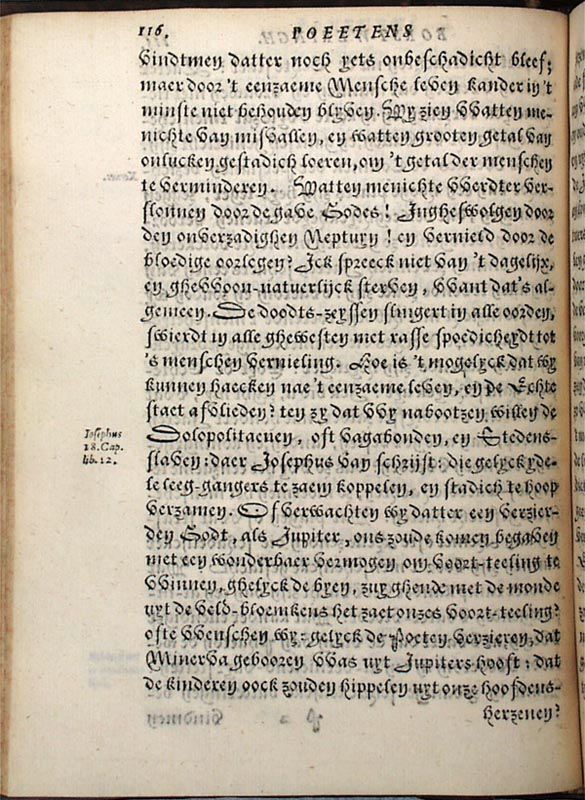 116. POEETENS
vindtmen datter noch yets onbeschadicht bleef;
maer door 't eenzaeme Mensche leven kander in 't
minste niet behouden blyven. Wy zien VVatten me-
nichte van misvallen, en watten grooten getal van
onlucken gestadich loeren, om 't getal der menschen
te verminderen. Watten menichte VVerdter ver-
slonnen door de gave Godes! Jngheswolgen door
den onverzadighen Neptuny! en vernield door de
bloedige oorlogen? Jck spreeck niet van 't dagelijx,
en ghevvoon-natuerlijck sterven, VVant dat's al-
gemeen. De doodts-zeyssen slingert in alle oorden,
swierdt in alle ghewesten met rasse spoedicheydt tot
's menschen vernieling. Hoe is 't mogelyck dat wy
kunnen haecken nae 't eenzaeme leven, en de Echte
staet afvlieden? ten zy dat VVy nabootzen willen de
Iosephus
18. Cap.
lib. 12.
Dolopolitaenen, oft vagabonden, en Stedens-
slaven: daer Josephus van schrijft: die gelyck yde-
le leeg-gangers te zaem koppelen, en stadich te hoop
verzamen. Of verwachten wy datter een verzier-
den Godt, als Jupiter, ons zoude komen begaven
met een wonderbaer vermogen om voort-teeling te
VVinnen, ghelyck de byen, zuyghende met de monde
uyt de veld-bloemkens het zaet onzes voort-teeling?
ofte VVenschen wy: gelyck de Poeten verzieren, dat
Minerva gebooren VVas uyt Jupiters hooft: dat
de kinderen oock zouden hippelen uyt onze hoofdens-
herzenen?